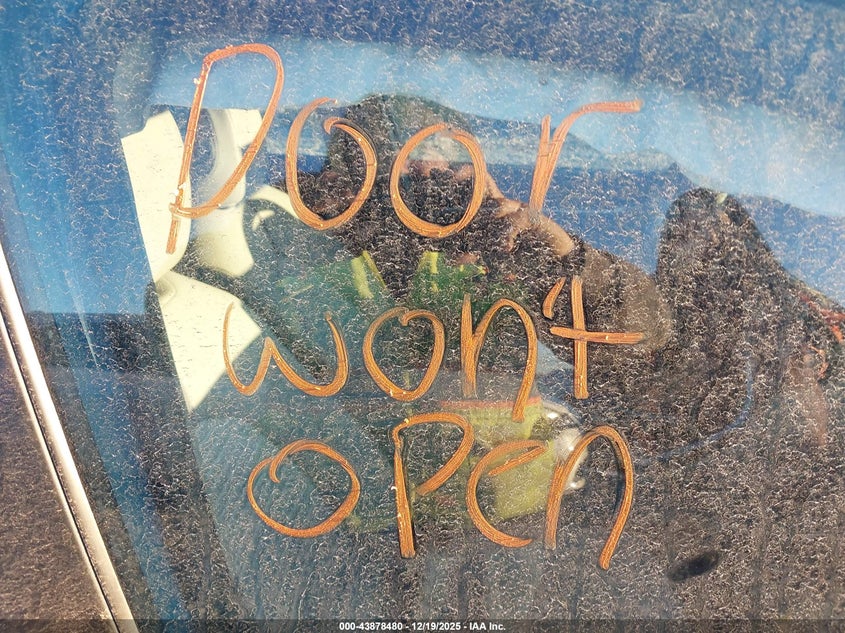 Door
won't
open
000-43878480 - 12/19/2025 - IAA Inc.